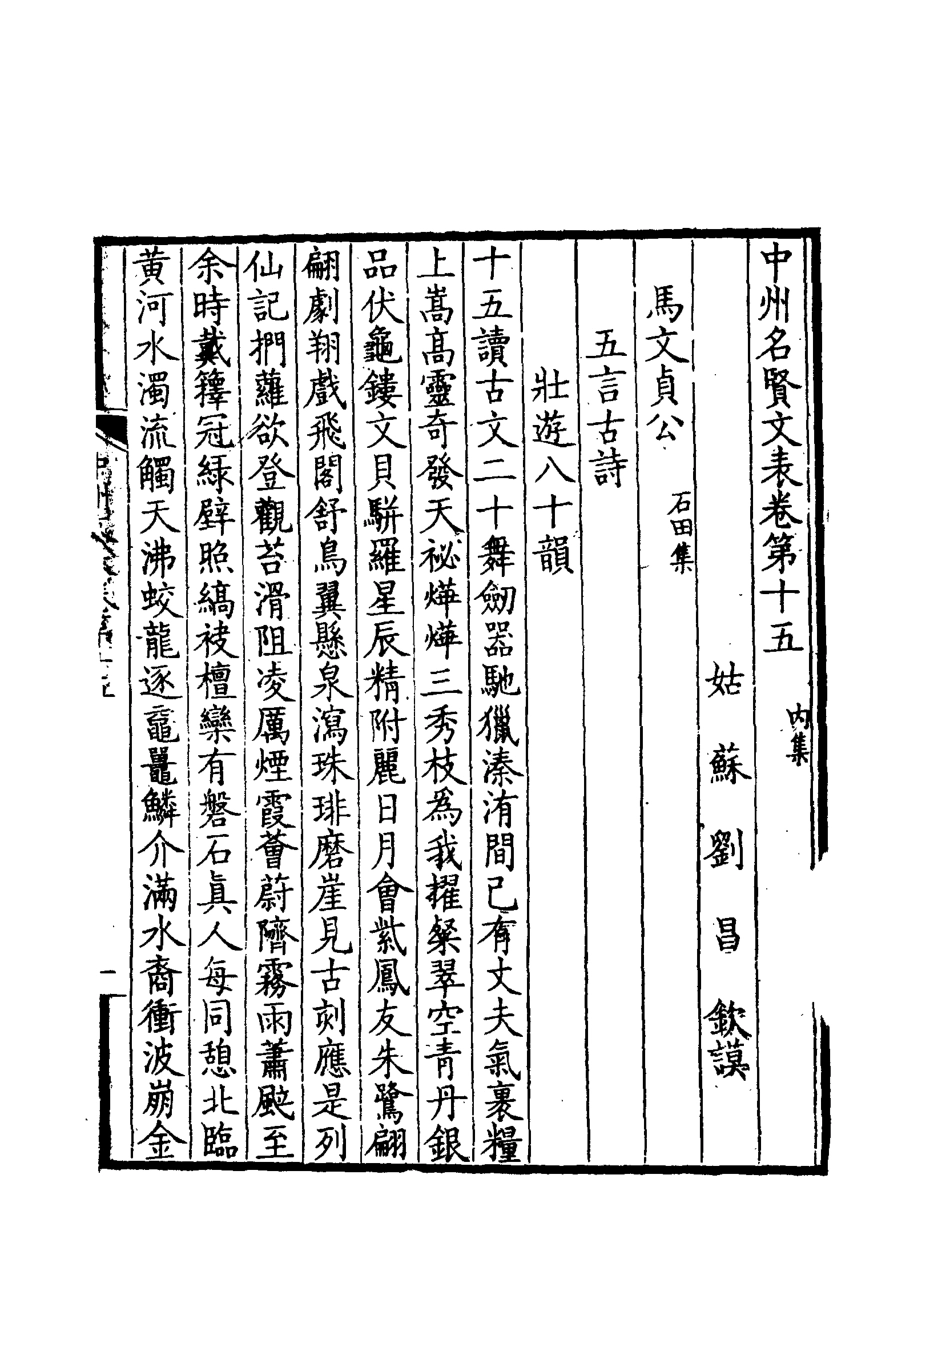 中州名賢文表卷第十五 內集
姑蘇劉昌欽謨
馬文貞公 石田集
五言古詩
壯遊八十韻
十五讀古文二十舞劒器馳獵溱洧間已有丈夫氣裹糧
上嵩高靈奇發天祕燁燁三秀枝為我擢粲翠空青丹銀
品伏龜鏤文貝駢羅星辰精附麗日月會紫鳳友朱鷺翩
翩劇翔戲飛閣舒鳥翼懸泉瀉珠琲磨崖見古刻應是列
仙記捫蘿欲登觀苔滑阻凌厲煙霞薈蔚隮霧雨蕭颼至
余時戴籜冠緑壁照縞袂檀欒有磐石真人每同憩北臨
黄河水濁流觸天沸蛟龍逐黿鼉鱗介滿水裔衝波崩金